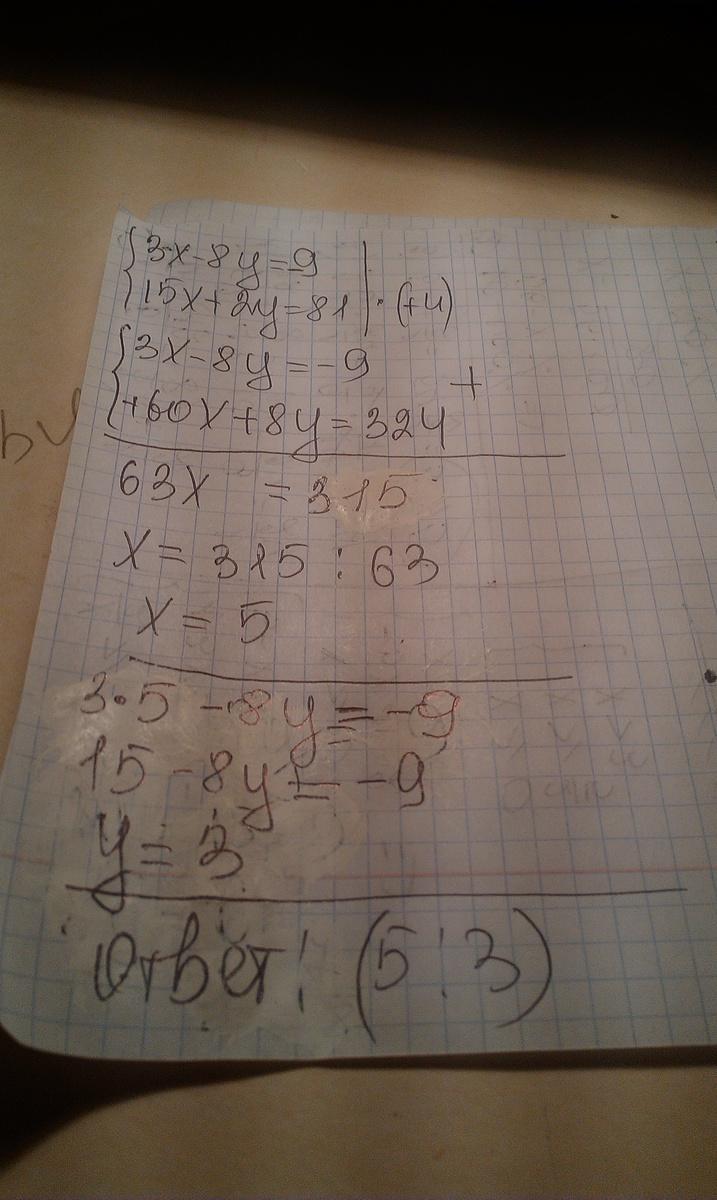 {3x-8y=-9 |
{15x+2y=81 | · (+4)
{3x-8y=-9 +
{+60x+8y=324
63x = 315
x= 315 : 63
x= 5
3·5 -8y=-9
15 -8y=-9
y= 3
Ответ: (5;3)